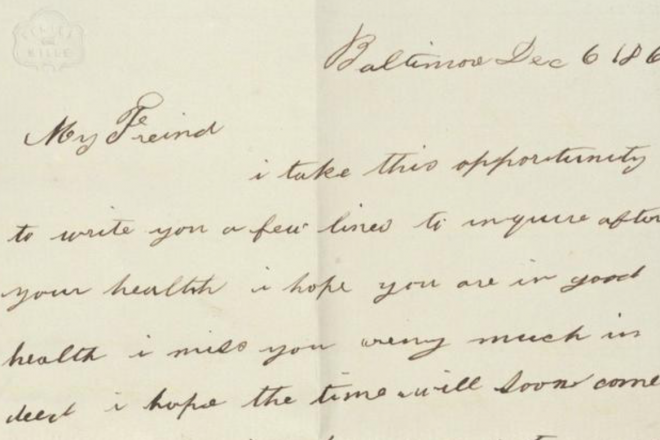 Baltimore Dec 6 186
My Freind
i take this opportunity
to write you a few lines to inquire after
your health i hope you are in good
health i miss you very much in
deed i hope the time will soon come